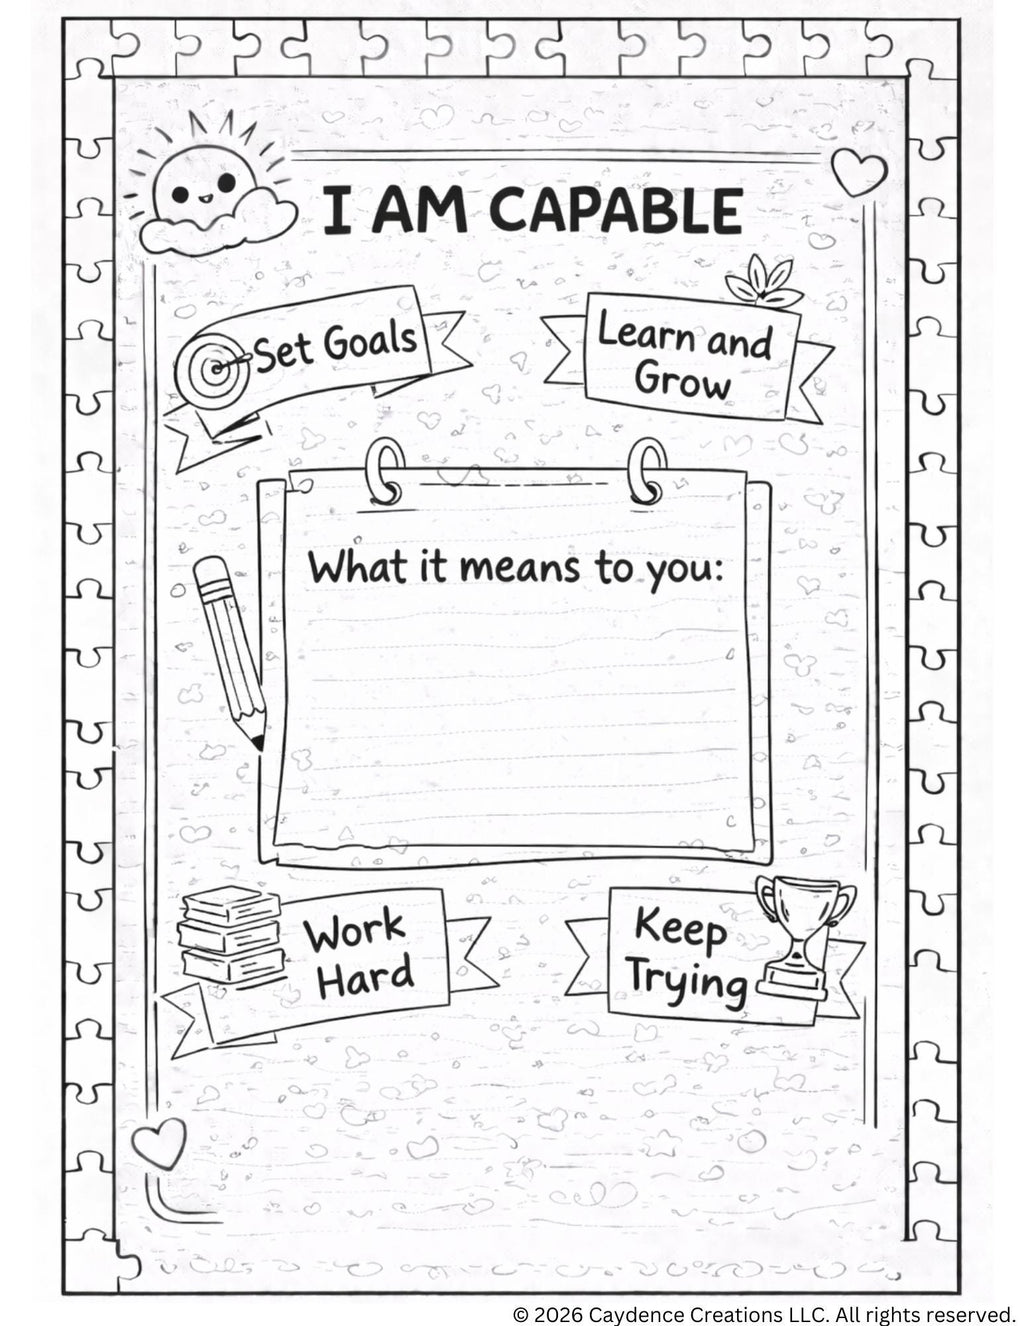 I AM CAPABLE
Set Goals
Learn and
Grow
What it means to you:
Work
Hard
Keep
Trying
© 2026 Caydence Creations LLC. All rights reserved.